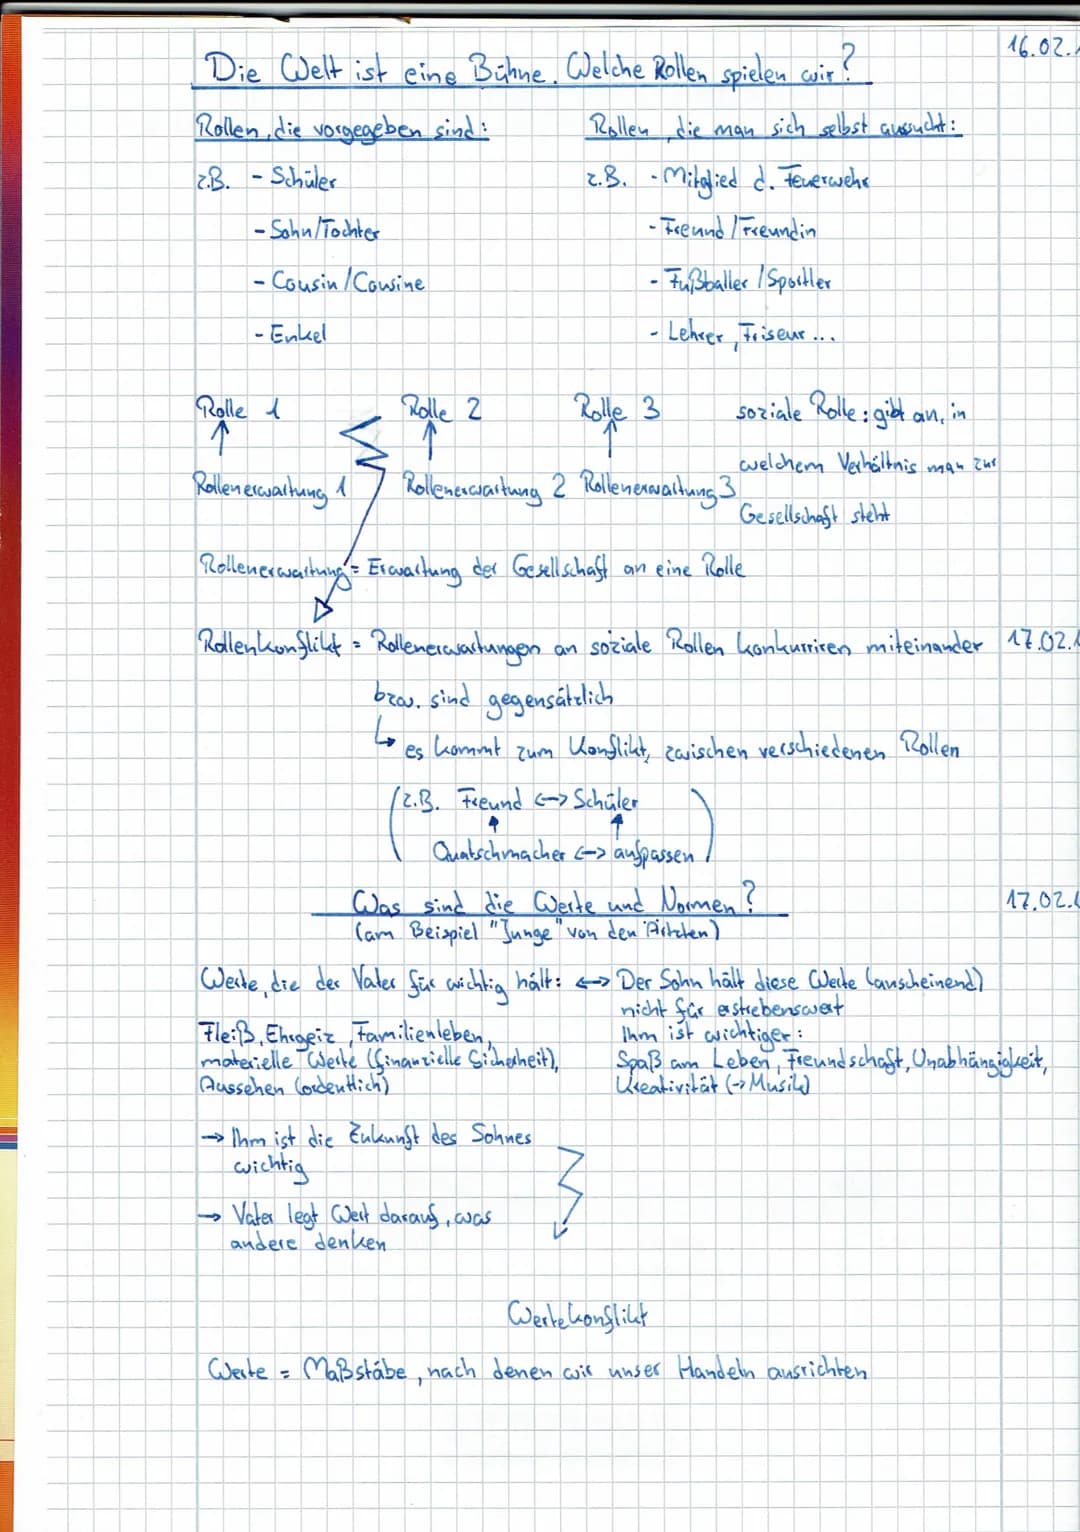 Die Welt ist eine Bühne. Welche Rollen spielen wir?
16.02.
Rollen, die vorgegeben sind:
z.B. - Schüler
- Sohn/Tochter
- Cousin/Cousine
- Enkel
Rollen, die man sich selbst aussucht:
z.B. - Mitglied d. Feuerwehr
- Freund/Freundin
- Fußballer/Sportler
- Lehrer, Friseur ...
Rolle 1 Rolle 2 Rolle 3
↑ ↑ ↑
Rollenerwartung 1 Rollenerwartung 2 Rollenerwartung 3
soziale Rolle: gibt an, in
welchem Verhältnis man zur
Gesellschaft steht
Rollenerwartung = Erwartung der Gesellschaft an eine Rolle
Rollenkonflikt = Rollenerwartungen an soziale Rollen konkurriren miteinander
17.02.
bzw. sind gegensätzlich
↳ es kommt zum Konflikt, zwischen verschiedenen Rollen
(z.B. Freund <-> Schüler
Quatschmacher <-> aufpassen)
Was sind die Werte und Normen?
17.02.
(am Beispiel "Junge" von den Ärtzten)
Werte, die der Vater für wichtig hält: <-> Der Sohn hält diese Werte (anscheinend)
nicht für erstrebenswert
Fleiß, Ehrgeiz, Familienleben,
materielle Werte (finanzielle Sicherheit),
Aussehen (ordentlich)
Ihm ist wichtiger:
Spaß am Leben, Freundschaft, Unabhängigkeit,
Kreativität (-> Musik)
→ Ihm ist die Zukunft des Sohnes
wichtig
→ Vater legt Wert darauf, was
andere denken
Wertekonflikt
Werte = Maßstäbe, nach denen wir unser Handeln ausrichten